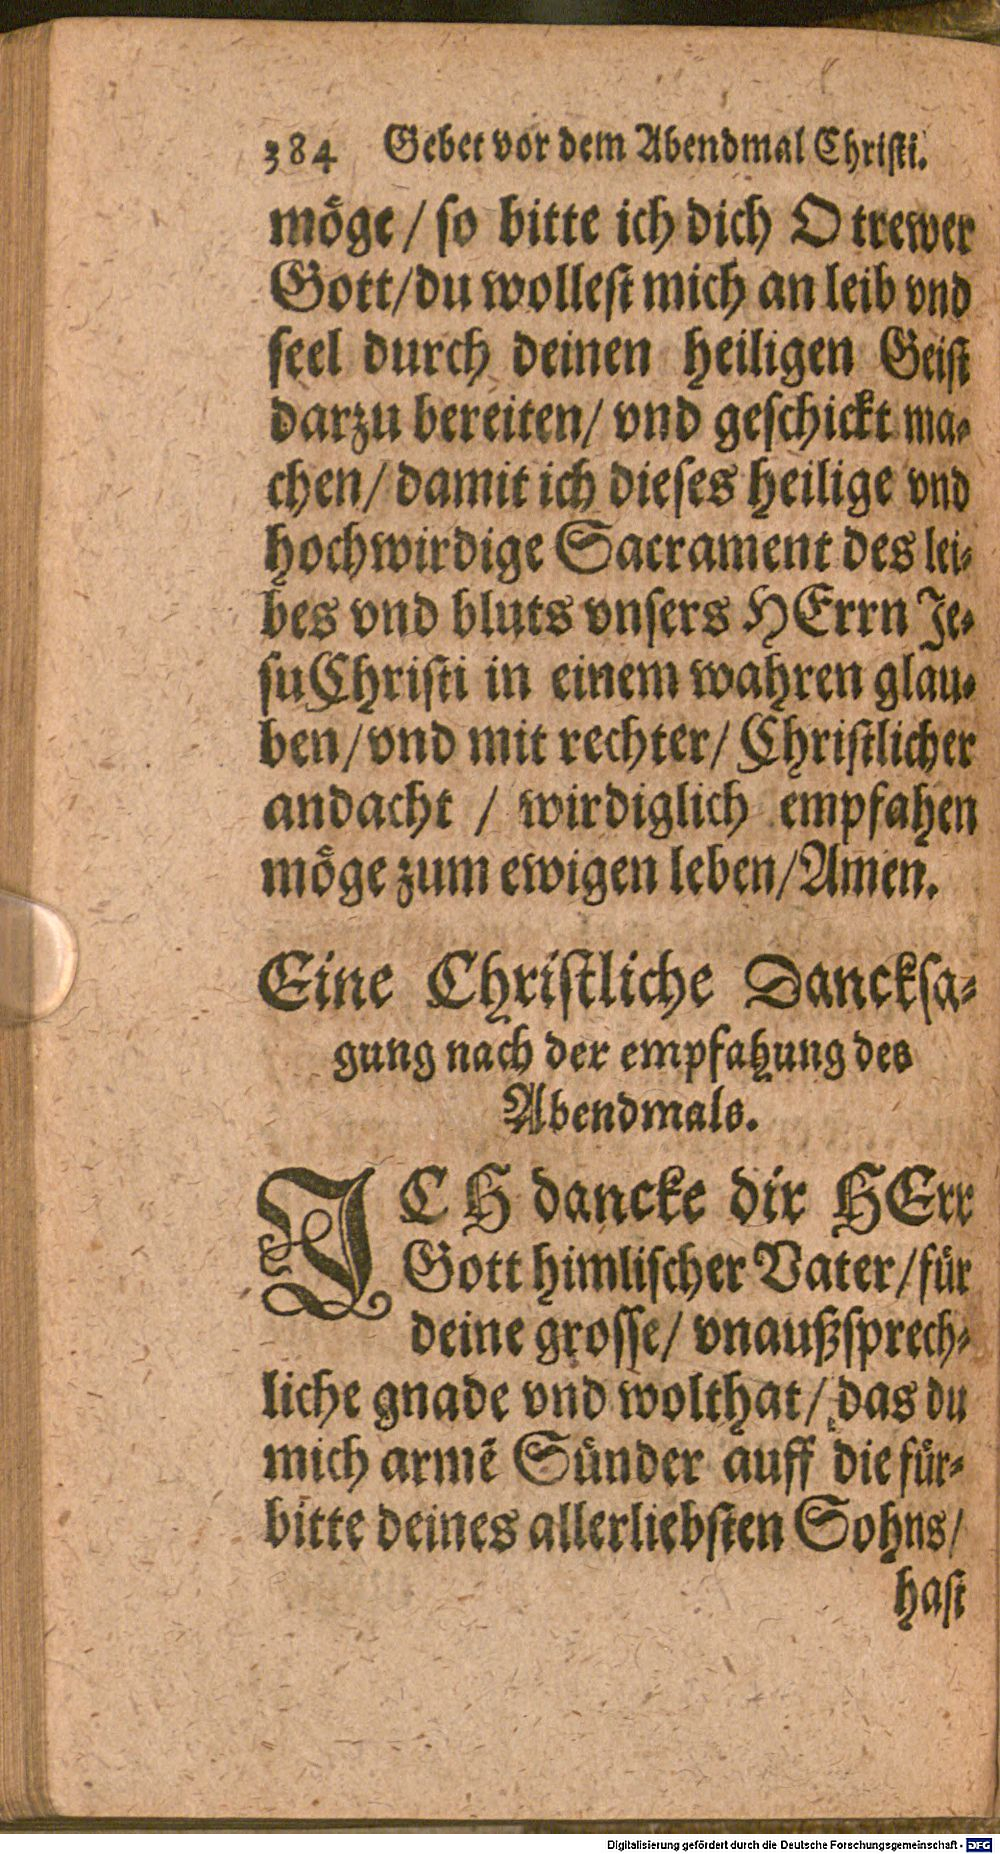 384 Gebet vor dem Abendmal Christi.
möge / so bitte ich dich O trewer
Gott/du wollest mich an leib vnd
seel durch deinen heiligen Geist
darzu bereiten/ vnd geschickt ma-
chen/ damit ich dieses heilige vnd
hochwirdige Sacrament des lei-
bes vnd bluts vnsers HErrn Je-
su Christi in einem wahren glau-
ben/vnd mit rechter/ Christlicher
andacht / wirdiglich empfahen
möge zum ewigen leben/Amen.
Eine Christliche Dancksa-
gung nach der empfahung des
Abendmals.
ICH dancke dir HErr
Gott himlischer Vater/für
deine grosse/ vnaußsprech-
liche gnade vnd wolthat/ das du
mich armē Sünder auff die für-
bitte deines allerliebsten Sohns/
hast
Digitalisierung gefördert durch die Deutsche Forschungsgemeinschaft - DFG